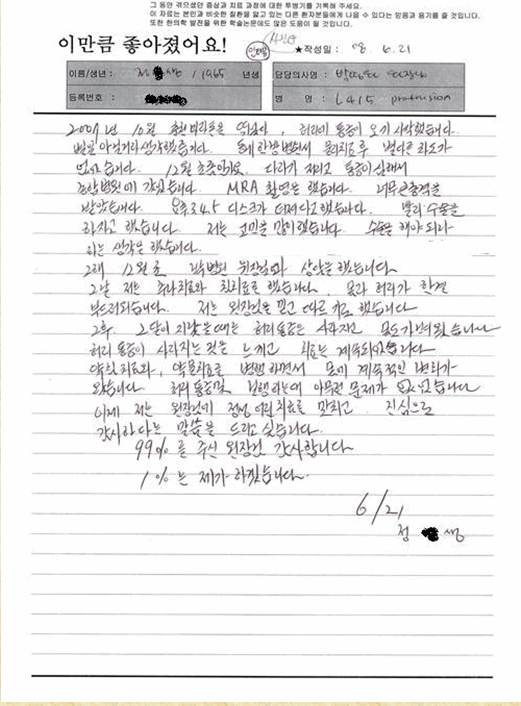 그 동안 겪으셨던 증상과 치료 과정에 대한 투병기를 기록해 주세요.
이 자료는 본인과 비슷한 질환을 앓고 있는 다른 환자분들에게 나을 수 있다는 믿음과 용기를 줄 것입니다.
또한 한의학 발전을 위한 학술논문에도 많은 도움이 될 것입니다.
이만큼 좋아졌어요! ★작성일 : 08. 6. 21
이름/생년 : 정 생 / 1965 년생 담당의사명 :
등록번호 : 병 명 : L4L5 protrusion
2007년 10월 허리에 통증이 오기 시작했습니다.
생각했습니다. 동네 한방병원에서 물리치료로 별다른 효과가
없었습니다. 12월 초쯤 다리가 저리고 통증이 심해서
갔었습니다. MRA 촬영을 했습니다. 너무 큰 충격을
받았습니다. 요추 3.4.5 디스크가 했습니다. 빨리 수술을
하자고 했습니다. 저는 고민을 많이 했습니다. 수술을 해야 되나
하는 생각을 했습니다.
그래 12월 초 원장님과 상담을 했습니다
그날 저는 추나치료와 침치료를 했습니다. 목과 허리가 한결
부드러워졌습니다. 저는 원장님을 믿고 했습니다
그 후 2달이 지났을 때는 허리 통증은 사라지고
허리 통증이 사라지는 것을 느끼고 치료는 계속되었습니다
약침치료와, 약물치료를 병행하면서 몸에 계속적인 변화가
왔습니다. 허리 통증및 보행하는데 아무런 문제가 없었습니다
이제 저는 원장님이 정성 어린 치료를 마치고 진심으로
감사하다는 말씀을 드리고 싶습니다.
99%를 주신 원장님 감사합니다
1%는 제가 하겠습니다.
6/21
정 생